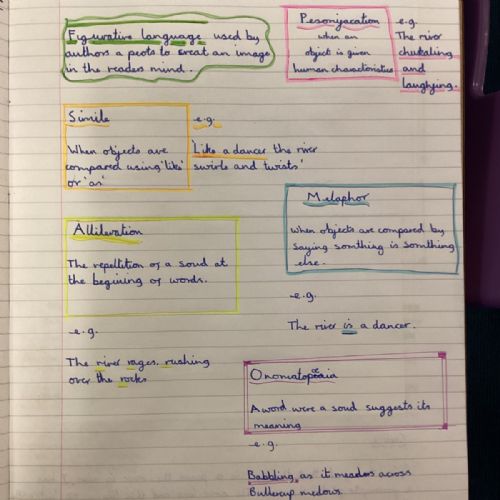 Figurative language used by
authors a poets to creat an image
in the readers mind.
Pesonifacation
when an
object is given
human characteristics
e.g.
The river
chukaling
and
laughjing.
Simile
When objects are
compared using 'like'
or 'as'
e.g.
'Like a dancer the river
swirls and twists'
Metaphor
when objects are compared by
saying somthing is somthing
else.
e.g.
The river is a dancer.
Alliteration
The repetition of a soud at
the begining of words.
e.g.
The river rages, rushing
over the rocks
Onomatopoeia
A word were a soud suggests its
meaning
e.g.
Babbling as it meaders across
Buttercup medows.